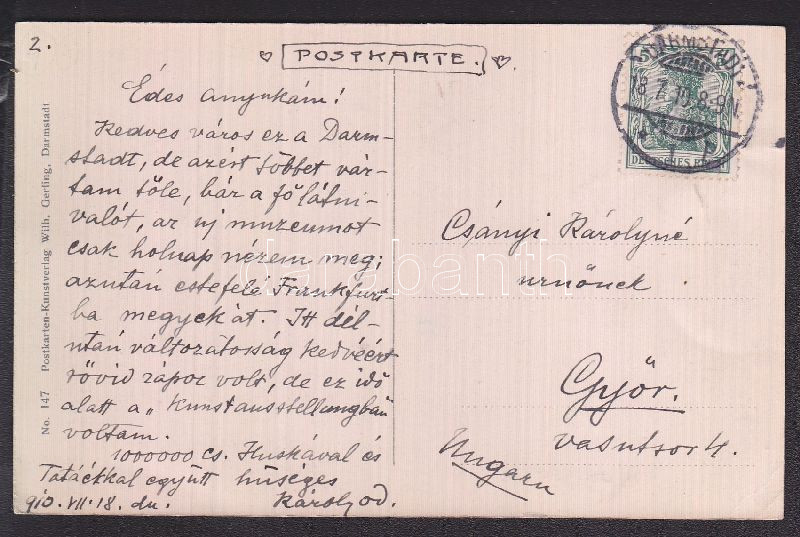 2.
POSTKARTE.
Édes anyukám!
Kedves város ez a Darm-
stadt, de azért többet vár-
tam tőle, bár a főlátni-
valót, az új muzeumot
csak holnap nézem meg;
azután estefelé Frankfurt
ba megyek át. Itt dél-
után változatosság kedvéért
rövid zápor volt, de ez idő
alatt a „Kunstausstellungban
voltam.
1000000 cs. Huskával és
Tatáékkal együtt hűséges
Károlyod.
910. VII. 18. du.
No. 147 Postkarten-Kunstverlag Wilh. Gerling, Darmstadt
DARMSTADT
18.7.10. 8-9N.
DEUTSCHES REICH
Csányi Károlyné
urnőnek
Győr.
vasutsor 4.
Ungarn
darabanth